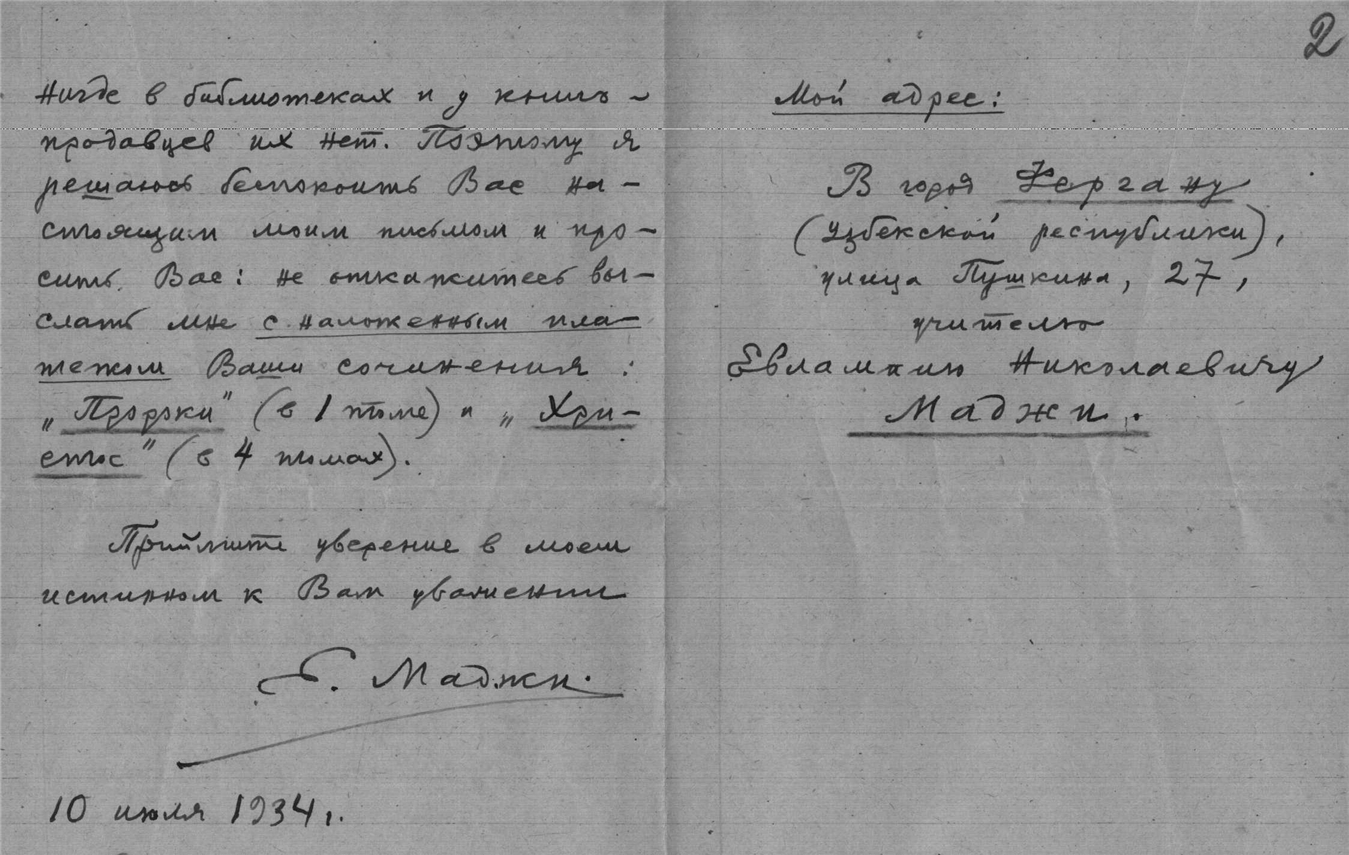 нигде в библиотеках и у книго-
продавцев их нет. Поэтому я
решаюсь беспокоить Вас на-
стоящим моим письмом и про-
сить Вас: не откажитесь вы-
слать мне с наложенным пла-
тежом Ваши сочинения:
„Пророки” (в 1 томе) и „Хри-
стос” (в 4 томах).
Приймите уверение в моем
истинном к Вам уважении
Е. Маджи.
10 июля 1934 г.
2
Мой адрес:
В город Фергану
(Узбекской республики),
улица Пушкина, 27,
учителю
Евлампию Николаевичу
Маджи.